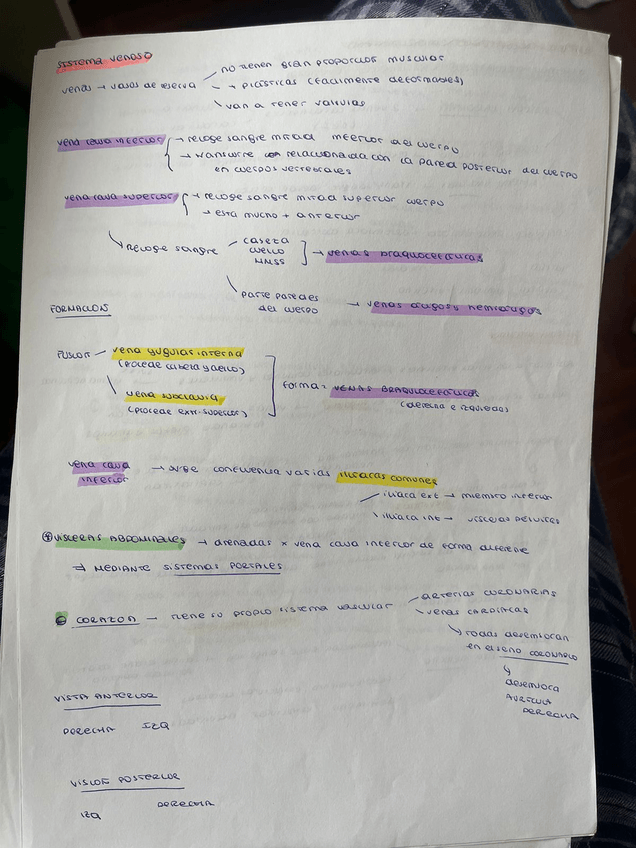 SISTEMA VENOSO
no tienen gran proporción muscular
venas → vasos de reserva → plásticas (fácilmente deformables)
van a tener válvulas
vena cava inferior → recoge sangre mitad inferior del cuerpo
→ transcurre relacionada con la pared posterior del cuerpo
en cuerpos vertebrales
vena cava superior → recoge sangre mitad superior cuerpo
→ está mucho + anterior
Recoge sangre
cabeza
cuello
MMSS
→ venas braquiocefálicas
parte paredes
del cuerpo
→ venas ácigos y hemiácigos
FORMACIÓN
FUSIÓN
vena yugular interna
(procede cabeza y cuello)
vena subclavia
(procede extr. superior)
forma = VENAS BRAQUIOCEFÁLICAS
(derecha e izquierda)
vena cava
inferior
→ surge confluencia varias iliacas comunes
iliaca ext → miembro inferior
iliaca int → vísceras pélvicas
VISCERAS ABDOMINALES → drenadas x vena cava inferior de forma diferente
⇒ MEDIANTE SISTEMAS PORTALES
CORAZÓN — tiene su propio sistema vascular
ARTERIAS CORONARIAS
VENAS CARDIACAS
todas desembocan
en el seno CORONARIO
desemboca
AURÍCULA
DERECHA
VISTA ANTERIOR
DERECHA IZQ
VISIÓN POSTERIOR
IZQ DERECHA